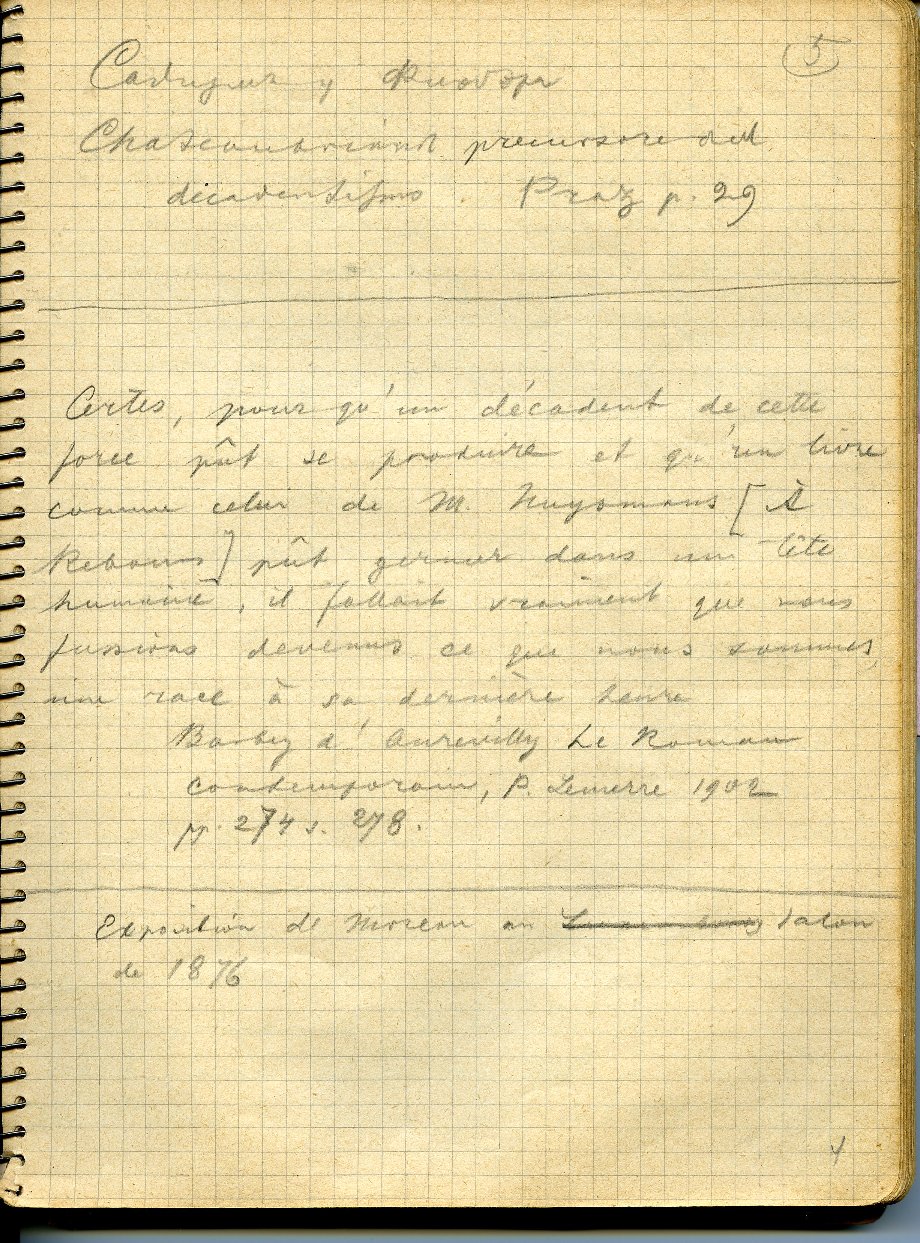 5
y
Chateaubriand precursore del
decadentismo. Praz p. 29
Certes, pour qu'un décadent de cette
force pût se produire et qu'un livre
comme celui de M. Huysmans [À
Rebours] pût germer dans une tête
humaine, il fallait vraiment que nous
fussions devenus ce que nous sommes,
une race à sa dernière heure
Barbey d'Aurevilly Le Roman
contemporain, P. Lemerre 1902
pp. 274 s. 278.
Exposition de Moreau au Salon
de 1876